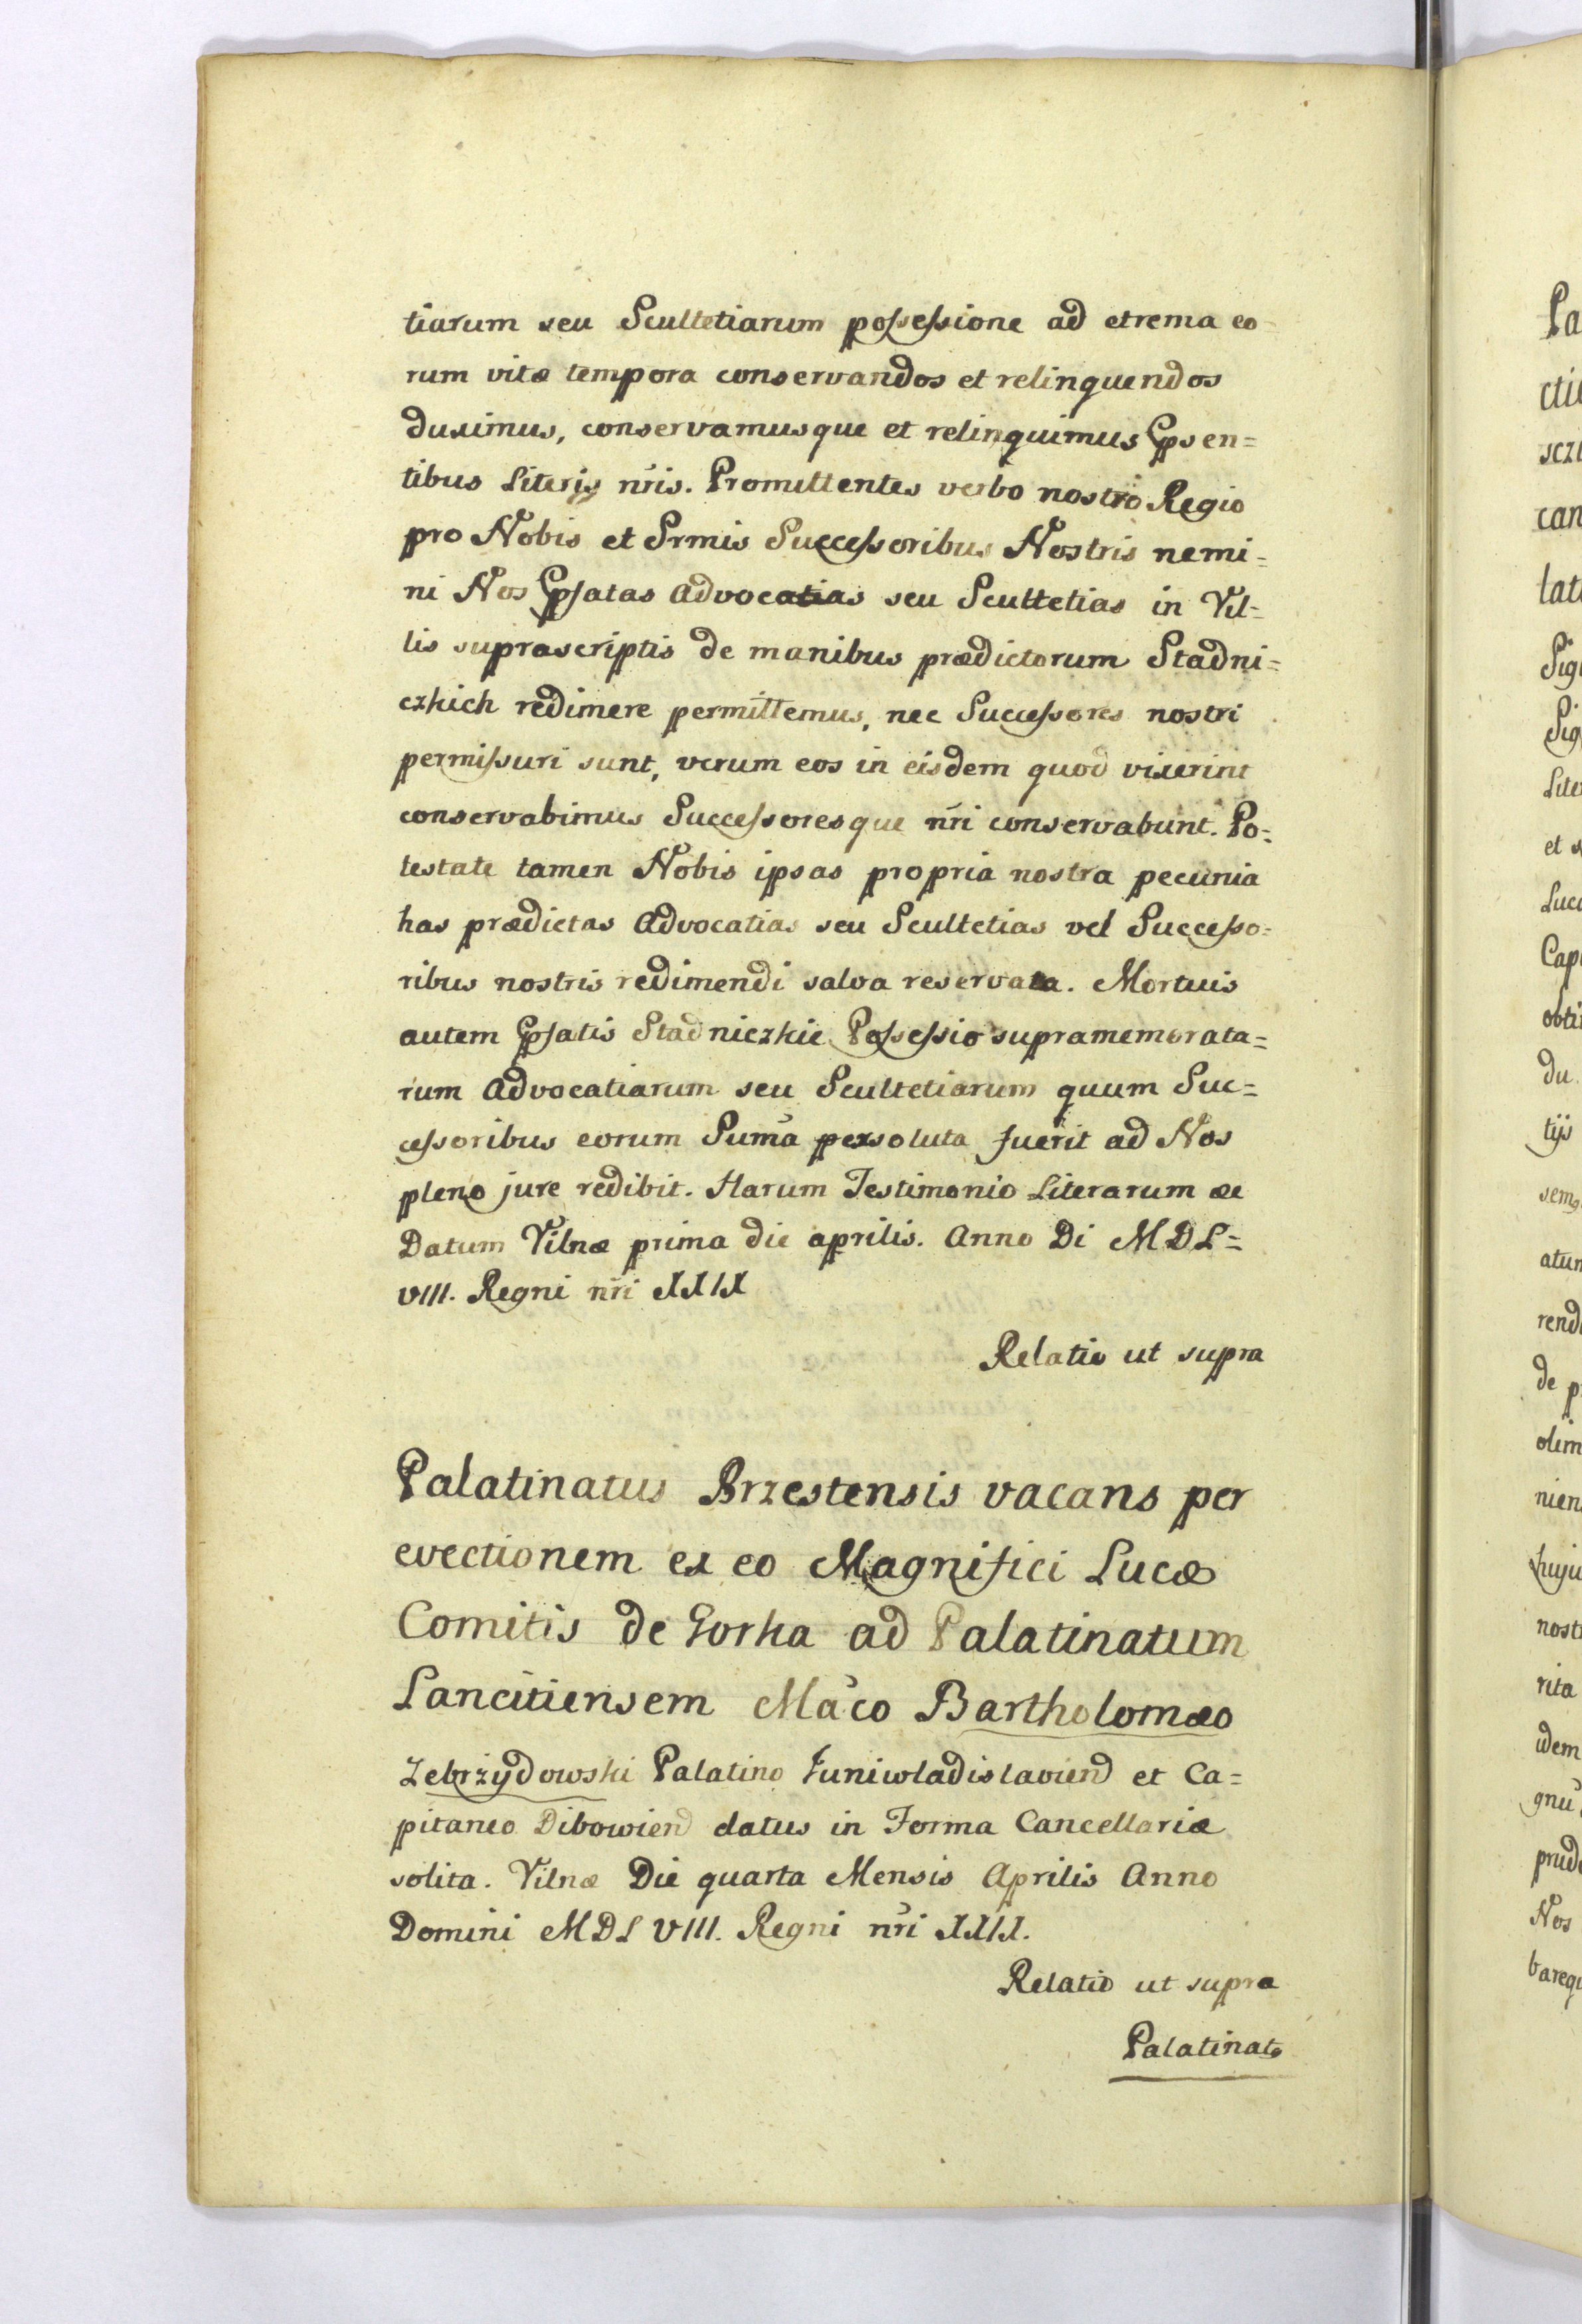 tiarum seu Scultetiarum possessione ad etrema eo-
rum vitæ tempora conservandos et relinquendos
duximus, conservamusque et relinquimus Ppsen=
tibus Literis nris. Promittentes verbo nostro Regio
pro Nobis et Srmis Successoribus Nostris nemi=
ni Nos Ppfatas Advocatias seu Scultetias in Vil=
lis suprascriptis de manibus prædictorum Stadni=
czkich redimere permittemus, nec Successores nostri
permissuri sunt, verum eos in eisdem quod vixerint
conservabimus Successoresque nri conservabunt. Po=
testate tamen Nobis ipsas propria nostra pecunia
has prædictas Advocatias seu Scultetias vel Successo=
ribus nostris redimendi salva reservata. Mortuis
autem Ppfatis Stadniczkie Possessio supramemorata=
rum Advocatiarum seu Scultetiarum quum Suc=
cessoribus eorum Suma persoluta fuerit ad Nos
pleno jure redibit. Harum Testimonio Literarum æ
Datum Vilnæ prima die aprilis. Anno Di MDL=
VIII. Regni nri XXIX
Relatio ut supra
Palatinatus Brzestensis vacans per
evectionem ex eo Magnifici Lucæ
Comitis de Gorka ad Palatinatum
Lancitiensem Maco Bartholomæo
Zebrzydowski Palatino Juniwladislaviend et Ca=
pitaneo Dibowiend datus in Forma Cancellariæ
solita. Vilnæ Die quarta Mensis Aprilis Anno
Domini MDLVIII. Regni nri XXIX.
Relatio ut supra
Palatinat9
Pa
can
Sig
Sig
et
du
tijs
rend
de p
olim
nien
huju
nost
rita
idem
Nos